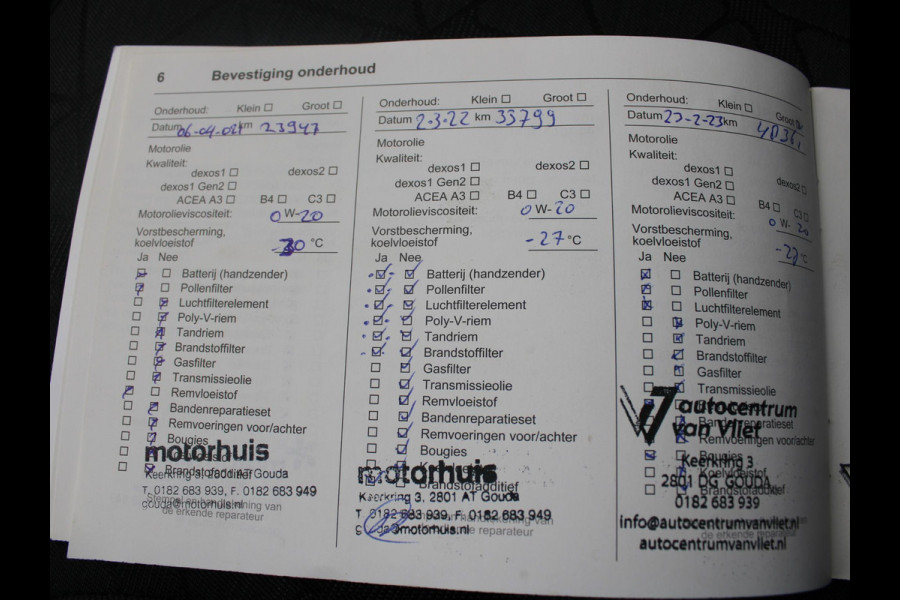 6 Bevestiging onderhoud
Onderhoud: Klein Groot
Datum 06-04-021 km 23947
Motorolie
Kwaliteit:
dexos1 dexos2
dexos1 Gen2
ACEA A3 B4 C3
Motorolieviscositeit: 0 W-20
Vorstbescherming,
koelvloeistof -30 °C
Ja Nee
Batterij (handzender)
Pollenfilter
Luchtfilterelement
Poly-V-riem
Tandriem
Brandstoffilter
Gasfilter
Transmissieolie
Remvloeistof
Bandenreparatieset
Remvoeringen voor/achter
Bougies
motorhuis
Brandstofadditief
Keerkring 3, 2801 AT Gouda
T. 0182 683 939, F. 0182 683 949
gouda@motorhuis.nl
de erkende reparateur
Onderhoud: Klein Groot
Datum 2-3-22 km 33799
Motorolie
Kwaliteit:
dexos1 dexos2
dexos1 Gen2
ACEA A3 B4 C3
Motorolieviscositeit: 0 W-20
Vorstbescherming,
koelvloeistof -27 °C
Ja Nee
Batterij (handzender)
Pollenfilter
Luchtfilterelement
Poly-V-riem
Tandriem
Brandstoffilter
Gasfilter
Transmissieolie
Remvloeistof
Bandenreparatieset
Remvoeringen voor/achter
Bougies
motorhuis
Brandstofadditief
Keerkring 3, 2801 AT Gouda
T 0182 683 939, F. 0182 683 949
@motorhuis.nl
de erkende reparateur
Onderhoud: Klein Groot
Datum 22-2-23 km
Motorolie
Kwaliteit:
dexos1 dexos2
dexos1 Gen2
ACEA A3 B4 C3
Motorolieviscositeit: 0 W- 20
Vorstbescherming,
koelvloeistof -27 °C
Ja Nee
Batterij (handzender)
Pollenfilter
Luchtfilterelement
Poly-V-riem
Tandriem
Brandstoffilter
Gasfilter
Transmissieolie
autocentrum
van Vliet
Bandenreparatieset
Remvoeringen voor/achter
Bougies
Keerkring 3
Koelvloeistof
2801 DG GOUDA
Brandstofadditief
0182 683 939
info@autocentrumvanvliet.nl
de erkende reparateur
autocentrumvanvliet.nl